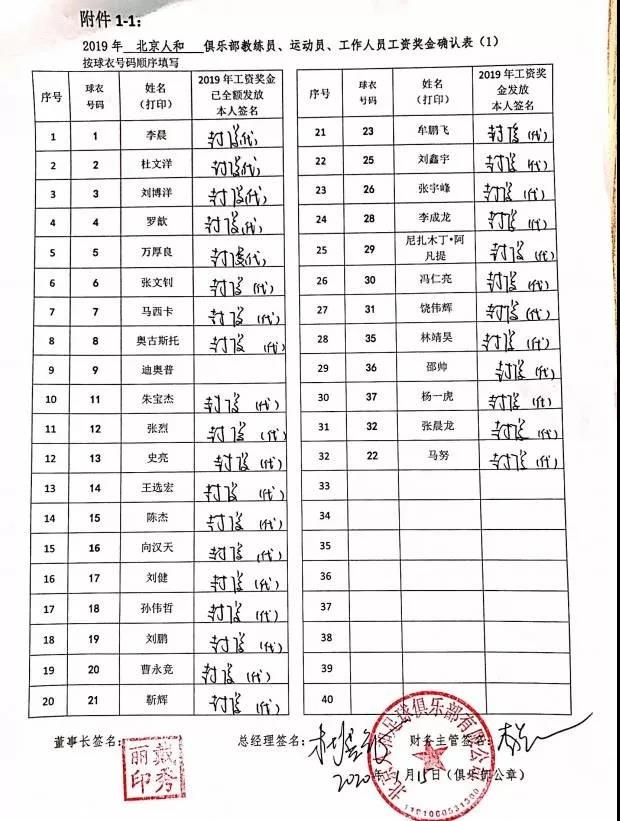 附件 1-1：
2019 年 北京人和 俱乐部教练员、运动员、工作人员工资奖金确认表（1）
按球衣号码顺序填写
序号 球衣号码 姓名（打印） 2019 年工资奖金已全额发放本人签名
1 1 李晨 (代)
2 2 杜文洋 (代)
3 3 刘博洋 (代)
4 4 罗歆 (代)
5 5 万厚良 (代)
6 6 张文钊 (代)
7 7 马西卡 (代)
8 8 奥古斯托 (代)
9 9 迪奥普
10 11 朱宝杰 (代)
11 12 张烈 (代)
12 13 史亮 (代)
13 14 王选宏 (代)
14 15 陈杰 (代)
15 16 向汉天 (代)
16 17 刘健 (代)
17 18 孙伟哲 (代)
18 19 刘鹏 (代)
19 20 曹永竞 (代)
20 21 靳辉 (代)
序号 球衣号码 姓名（打印） 2019 年工资奖金发放本人签名
21 23 牟鹏飞 (代)
22 25 刘鑫宇 (代)
23 26 张宇峰 (代)
24 28 李成龙 (代)
25 29 尼扎木丁•阿凡提 (代)
26 30 冯仁亮 (代)
27 31 饶伟辉 (代)
28 35 林靖昊 (代)
29 36 邵帅 (代)
30 37 杨一虎 (代)
31 32 张晨龙 (代)
32 22 马努 (代)
33
34
35
36
37
38
39
40
董事长签名： 总经理签名： 财务主管签名：
戴秀丽印
2020年1月15日（俱乐部公章）
足球俱乐部有限公司